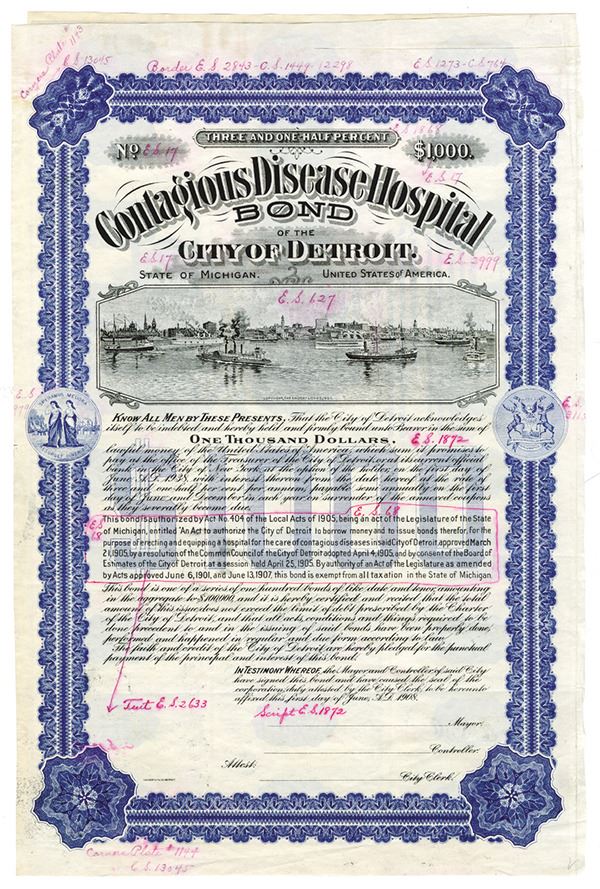 Corners Plate # 1193
E.S. 13045
Border E.S. 2843-C.S. 1449-12298
E.S. 1273-C.S. 764
THREE AND ONE-HALF PERCENT
E.S. 1868
No E.S. 17
$1,000.
E.S. 17
Contagious Disease Hospital
BOND
OF THE
CITY OF DETROIT.
E.S. 17
E.S. 2979
STATE OF MICHIGAN.
3
UNITED STATES of AMERICA.
E.S. 627
KNOW ALL MEN BY THESE PRESENTS, That the City of Detroit acknowledges
itself to be indebted and hereby held, and firmly bound unto Bearer in the sum of
ONE THOUSAND DOLLARS.
E.S. 1872
lawful money of the United States of America, which sum it promises to
pay at the office of the Treasurer of said City of Detroit, or at its current official
bank in the City of New York, at the option of the holder, on the first day of
June, A.D. 1938, with interest thereon from the date hereof at the rate of
three and one-half per cent per annum, payable semi-annually on the first
day of June and December in each year on surrender of the annexed coupons
as they severally become due.
E.S. 68
E.S.
68
This bond is authorized by Act No. 404 of the Local Acts of 1905, being an act of the Legislature of the State
of Michigan, entitled "An Act to authorize the City of Detroit to borrow money and to issue bonds therefor, for the
purpose of erecting and equipping a hospital for the care of contagious diseases in said City of Detroit, approved March
21, 1905, by resolution of the Common Council of the City of Detroit adopted April 4, 1905, and by consent of the Board of
Estimates of the City of Detroit at a session held April 25, 1905. By authority of an Act of the Legislature as amended
by Acts approved June 6, 1901, and June 13, 1907, this bond is exempt from all taxation in the State of Michigan.
This bond is one of a series of one hundred bonds of like date and tenor, amounting
in the aggregate to $100,000, and it is hereby certified and recited that the total
amount of this issue does not exceed the limit of debt prescribed by the Charter
of the City of Detroit, and that all acts, conditions and things required to be
done precedent to and in the issuing of said bonds have been properly done,
performed and happened in regular and due form according to law.
The faith and credit of the City of Detroit are hereby pledged for the punctual
payment of the principal and interest of this bond.
IN TESTIMONY WHEREOF, the Mayor and Controller of said City
have signed this bond and have caused the seal of the
corporation, duly attested by the City Clerk, to be hereunto
affixed this first day of June, A.D. 1908.
Tint E.S. 2633
Script E.S. 1872
Mayor.
Controller.
Attest:
City Clerk.
Corners Plate # 1194
E.S. 13045